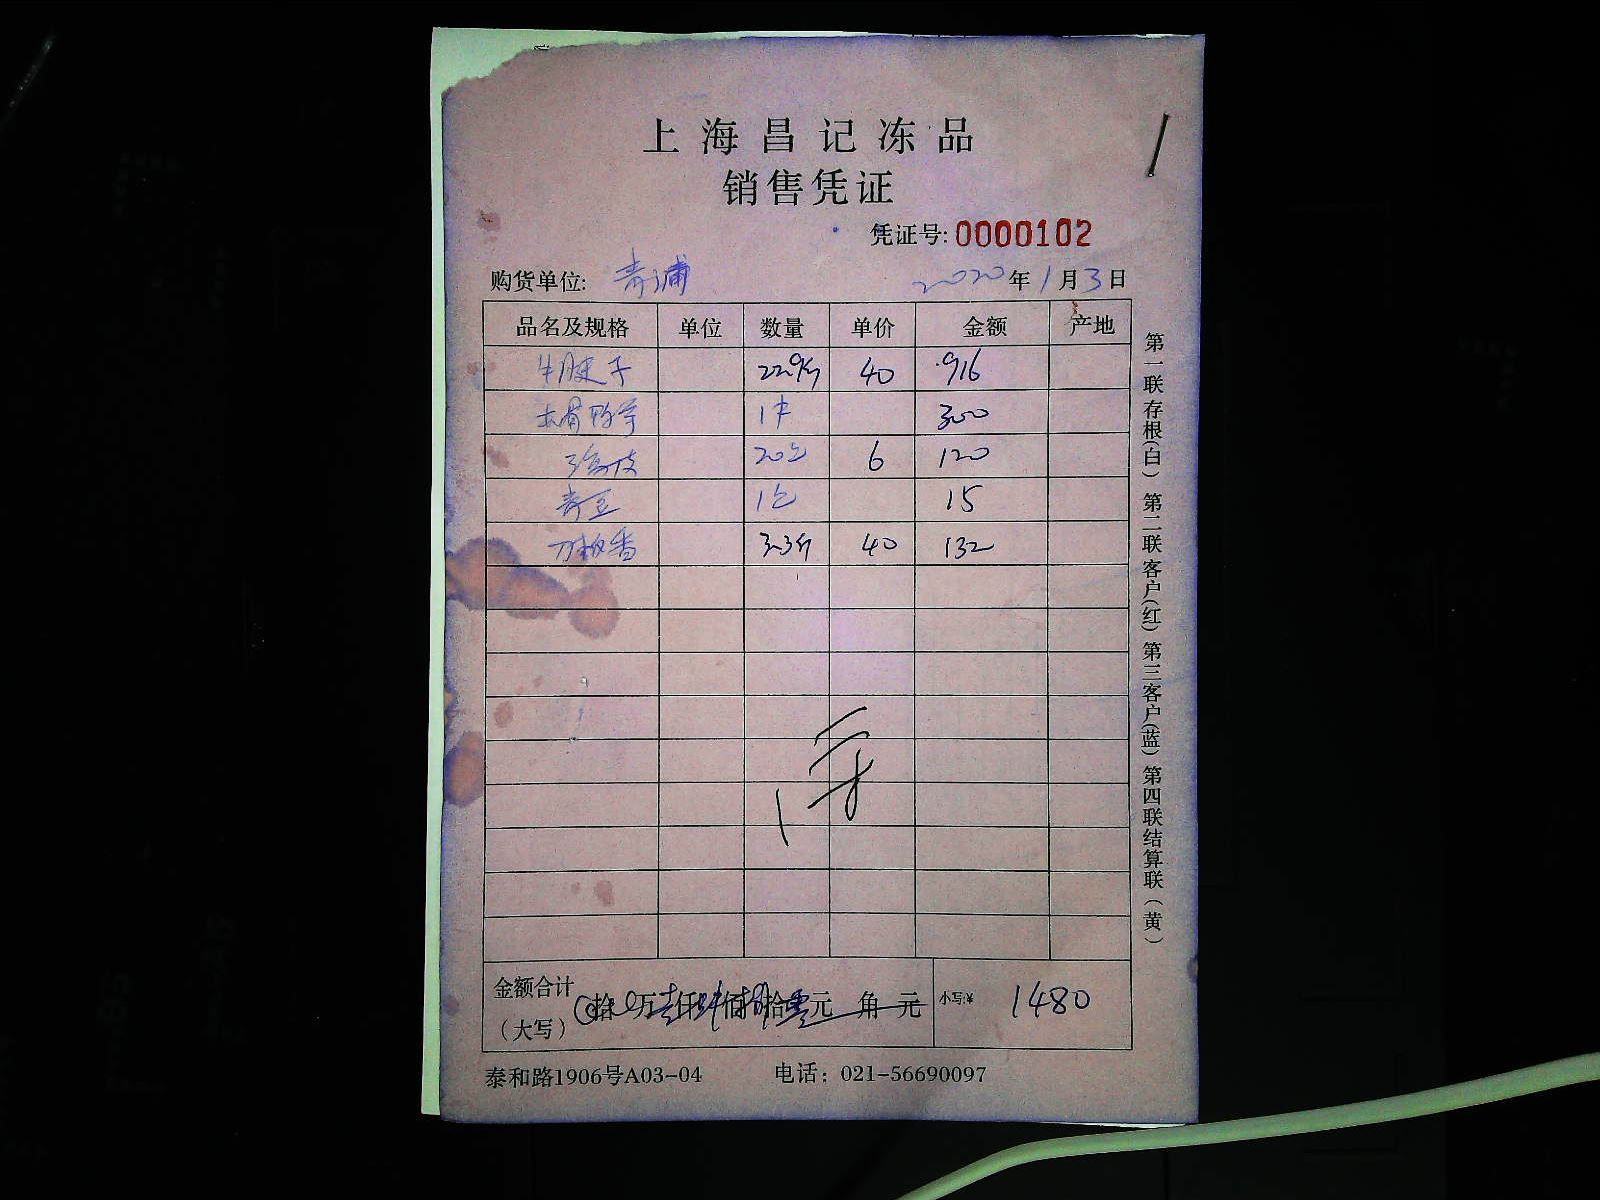 上海昌记冻品
销售凭证
凭证号:0000102
购货单位: 青浦 2020年1月3日
品名及规格 单位 数量 单价 金额 产地
牛腱子 22.9斤 40 916
300
6 120
青豆 1包 15
3.3斤 40 132
金额合计
(大写) 拾 万 仟 佰 拾 元 角 元 小写:¥ 1480
泰和路1906号A03-04 电话: 021-56690097
第一联存根(白) 第二联客户(红) 第三客户(蓝) 第四联结算联(黄)